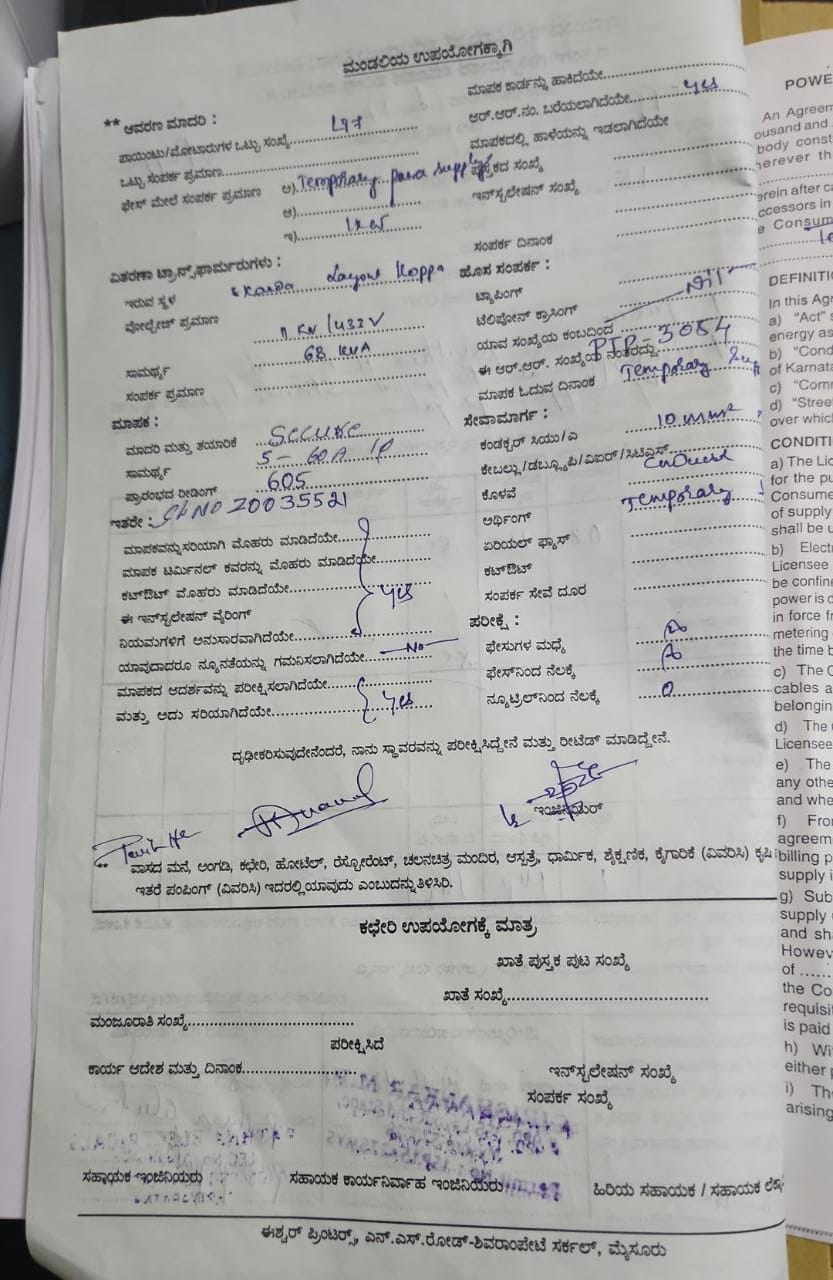 ಮಂಡಲಿಯ ಉಪಯೋಗಕ್ಕಾಗಿ
** ಆವರಣ ಮಾದರಿ :
ಪಾಯಿಂಟು/ಮೋಟಾರುಗಳ ಒಟ್ಟು ಸಂಖ್ಯೆ............
ಒಟ್ಟು ಸಂಪರ್ಕ ಪ್ರಮಾಣ............
ಫೇಸ್ ಮೇಲೆ ಸಂಪರ್ಕ ಪ್ರಮಾಣ ಅ) Temporary para supply
ಆ)............
ಇ) 1KW
ಮಾಪಕ ಕಾರ್ಡನ್ನು ಹಾಕಿದೆಯೇ............
ಆರ್.ಆರ್.ನಂ. ಬರೆಯಲಾಗಿದೆಯೇ............ Yes
ಮಾಪಕದಲ್ಲಿ ಹಾಳೆಯನ್ನು ಇಡಲಾಗಿದೆಯೇ
ಪುಸ್ತಕದ ಸಂಖ್ಯೆ ............
ಇನ್‌ಸ್ಟಲೇಷನ್ ಸಂಖ್ಯೆ ............
ಸಂಪರ್ಕ ದಿನಾಂಕ ............
ವಿತರಣಾ ಟ್ರಾನ್ಸ್‌ಫಾರ್ಮರುಗಳು :
ಇರುವ ಸ್ಥಳ Layout Koppa
ವೋಲ್ಟೇಜ್ ಪ್ರಮಾಣ 11 KV/433V
ಸಾಮರ್ಥ್ಯ 63 KVA
ಸಂಪರ್ಕ ಪ್ರಮಾಣ ............
ಹೊಸ ಸಂಪರ್ಕ :
ಟ್ಯಾಪಿಂಗ್ ............
ಟೆಲಿಫೋನ್ ಕ್ರಾಸಿಂಗ್ Nil
ಯಾವ ಸಂಖ್ಯೆಯ ಕಂಬದಿಂದ ............
ಈ ಆರ್.ಆರ್. ಸಂಖ್ಯೆಯ ನಂತರದ್ದು PTP-3054
ಮಾಪಕ ಓದುವ ದಿನಾಂಕ Temporary Sup
ಮಾಪಕ :
ಮಾದರಿ ಮತ್ತು ತಯಾರಿಕೆ Secure
ಸಾಮರ್ಥ್ಯ 5-60A 1P
ಪ್ರಾರಂಭದ ರೀಡಿಂಗ್ 605
ಇತರೇ : SL NO 20035521
ಮಾಪಕವನ್ನು ಸರಿಯಾಗಿ ಮೊಹರು ಮಾಡಿದೆಯೇ............
ಮಾಪಕ ಟರ್ಮಿನಲ್ ಕವರನ್ನು ಮೊಹರು ಮಾಡಿದೆಯೇ............
ಕಟ್‌ಔಟ್ ಮೊಹರು ಮಾಡಿದೆಯೇ............ Yes
ಈ ಇನ್‌ಸ್ಟಲೇಷನ್ ವೈರಿಂಗ್
ನಿಯಮಗಳಿಗೆ ಅನುಸಾರವಾಗಿದೆಯೇ............
ಯಾವುದಾದರೂ ನ್ಯೂನತೆಯನ್ನು ಗಮನಿಸಲಾಗಿದೆಯೇ No
ಮಾಪಕದ ಆದರ್ಶವನ್ನು ಪರೀಕ್ಷಿಸಲಾಗಿದೆಯೇ............
ಮತ್ತು ಅದು ಸರಿಯಾಗಿದೆಯೇ............ Yes
ಸೇವಾಮಾರ್ಗ :
ಕಂಡಕ್ಟರ್ ಸಿಯು/ಎ 10 mm²
ಕೇಬಲ್ಲು/ಡಬ್ಲ್ಯೂಪಿ/ವಿಐಆರ್/ಸಿಟಿಎಸ್............
ಕೊಳವೆ ............
ಅರ್ಥಿಂಗ್ Temporary
ಏರಿಯಲ್ ಫ್ಯೂಸ್ ............
ಕಟ್‌ಔಟ್ ............
ಸಂಪರ್ಕ ಸೇವೆ ದೂರ ............
ಪರೀಕ್ಷೆ :
ಫೇಸುಗಳ ಮಧ್ಯೆ ............
ಫೇಸ್‌ನಿಂದ ನೆಲಕ್ಕೆ ............
ನ್ಯೂಟ್ರಲ್‌ನಿಂದ ನೆಲಕ್ಕೆ 0
ದೃಢೀಕರಿಸುವುದೇನೆಂದರೆ, ನಾನು ಸ್ಥಾವರವನ್ನು ಪರೀಕ್ಷಿಸಿದ್ದೇನೆ ಮತ್ತು ರೀಟೆಡ್ ಮಾಡಿದ್ದೇನೆ.
ಇಂಜಿನಿಯರ್
** ವಾಸದ ಮನೆ, ಅಂಗಡಿ, ಕಛೇರಿ, ಹೋಟೆಲ್, ರೆಸ್ಟೋರೆಂಟ್, ಚಲನಚಿತ್ರ ಮಂದಿರ, ಆಸ್ಪತ್ರೆ, ಧಾರ್ಮಿಕ, ಶೈಕ್ಷಣಿಕ, ಕೈಗಾರಿಕೆ (ವಿವರಿಸಿ) ಕೃಷಿ
ಇತರೆ ಪಂಪಿಂಗ್ (ವಿವರಿಸಿ) ಇದರಲ್ಲಿ ಯಾವುದು ಎಂಬುದನ್ನು ತಿಳಿಸಿರಿ.
ಕಛೇರಿ ಉಪಯೋಗಕ್ಕೆ ಮಾತ್ರ
ಖಾತೆ ಪುಸ್ತಕ ಪುಟ ಸಂಖ್ಯೆ
ಖಾತೆ ಸಂಖ್ಯೆ............
ಮಂಜೂರಾತಿ ಸಂಖ್ಯೆ............
ಪರೀಕ್ಷಿಸಿದೆ
ಕಾರ್ಯ ಆದೇಶ ಮತ್ತು ದಿನಾಂಕ............
ಇನ್‌ಸ್ಟಲೇಷನ್ ಸಂಖ್ಯೆ
ಸಂಪರ್ಕ ಸಂಖ್ಯೆ
ಸಹಾಯಕ ಇಂಜಿನಿಯರು ಸಹಾಯಕ ಕಾರ್ಯನಿರ್ವಾಹ ಇಂಜಿನಿಯರು ಹಿರಿಯ ಸಹಾಯಕ / ಸಹಾಯಕ
ಈಶ್ವರ್ ಪ್ರಿಂಟರ್ಸ್, ಎನ್.ಎಸ್.ರೋಡ್-ಶಿವರಾಂಪೇಟೆ ಸರ್ಕಲ್, ಮೈಸೂರು
POWE
An Agreem
ousand and
body const
herever th
erein after ca
ccessors in
e Consum
DEFINITI
In this Agr
a) "Act" s
energy as
b) "Cond
of Karnata
c) "Comm
d) "Stree
over which
CONDITI
a) The Lic
for the pu
Consume
of supply
shall be u
b) Elect
Licensee
be confine
power is d
in force fr
metering
the time b
c) The C
cables a
belongin
d) The
Licensee
e) The
any othe
and whe
f) Fro
agreem
billing p
supply i
g) Sub
supply
and sh
Howev
of ......
the Co
requisit
is paid
h) Wi
either
i) Th
arising